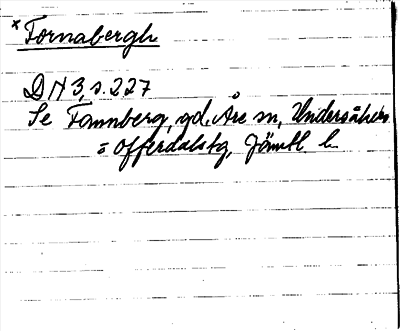 *Tornabergh
DN 3, s. 227
Se Tannberg, gd. Åre sn, Undersåkers
= Offerdalstg, Jämtl l.